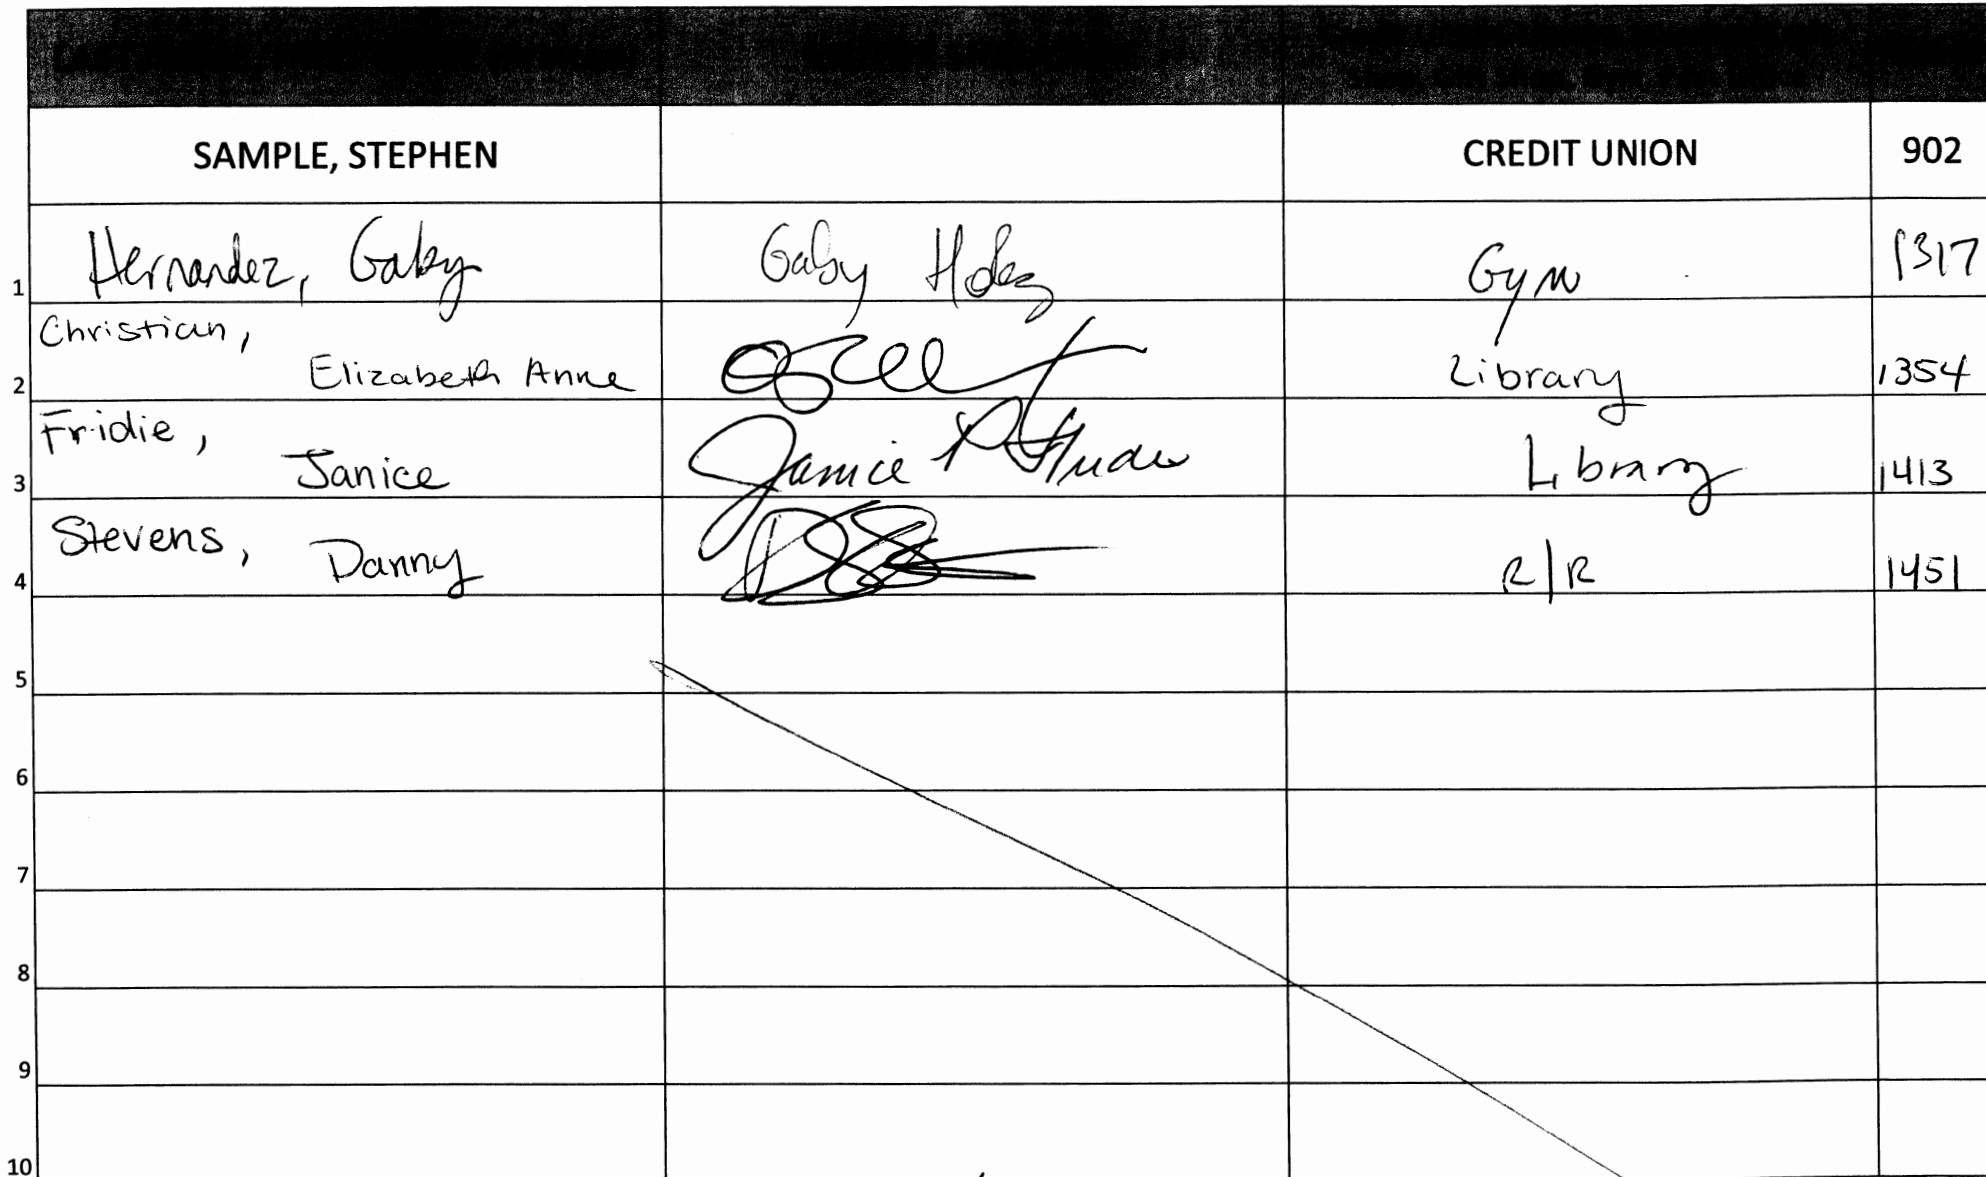 SAMPLE, STEPHEN CREDIT UNION 902
1 Hernandez, Gaby Gaby Hdez Gym 1317
Christian,
2 Elizabeth Anne Library 1354
Fridie,
3 Janice Janice Library 1413
Stevens,
4 Danny R/R 1451
5
6
7
8
9
10